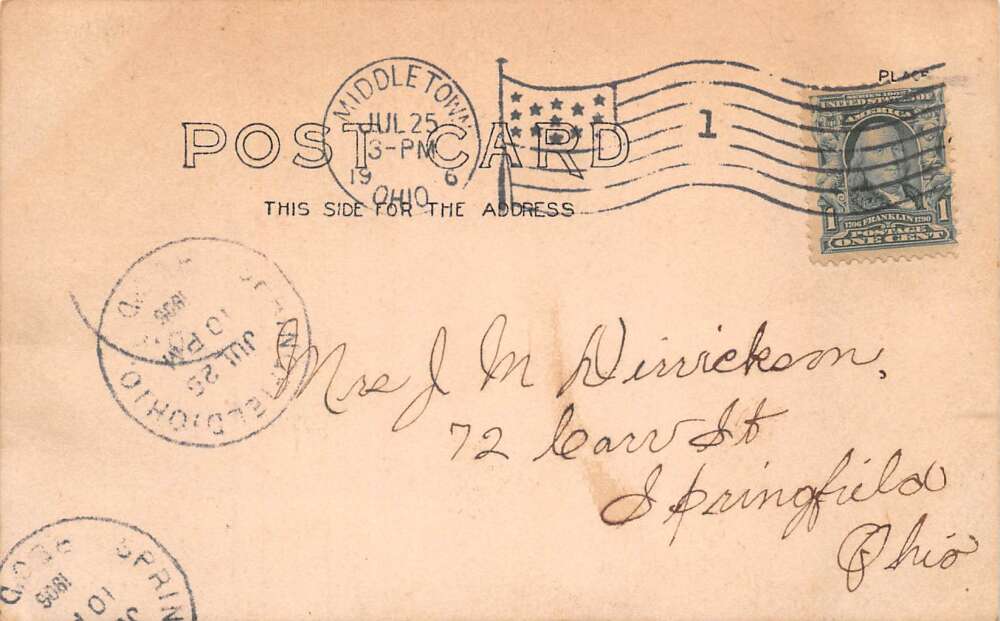 PLACE
MIDDLETOWN
JUL 25
3-PM
19 6
OHIO
1
POST CARD
THIS SIDE FOR THE ADDRESS
SERIES 1902
UNITED STATES OF
AMERICA
1706 FRANKLIN 1790
1 POSTAGE 1
ONE CENT
SPRINGFIELD, OHIO
REC'D
1906
10 PM
JUL 25
Mrs J M Dirrickson,
72 Carr St
Springfield
Ohio
SPRIN
REC'D
1906
10